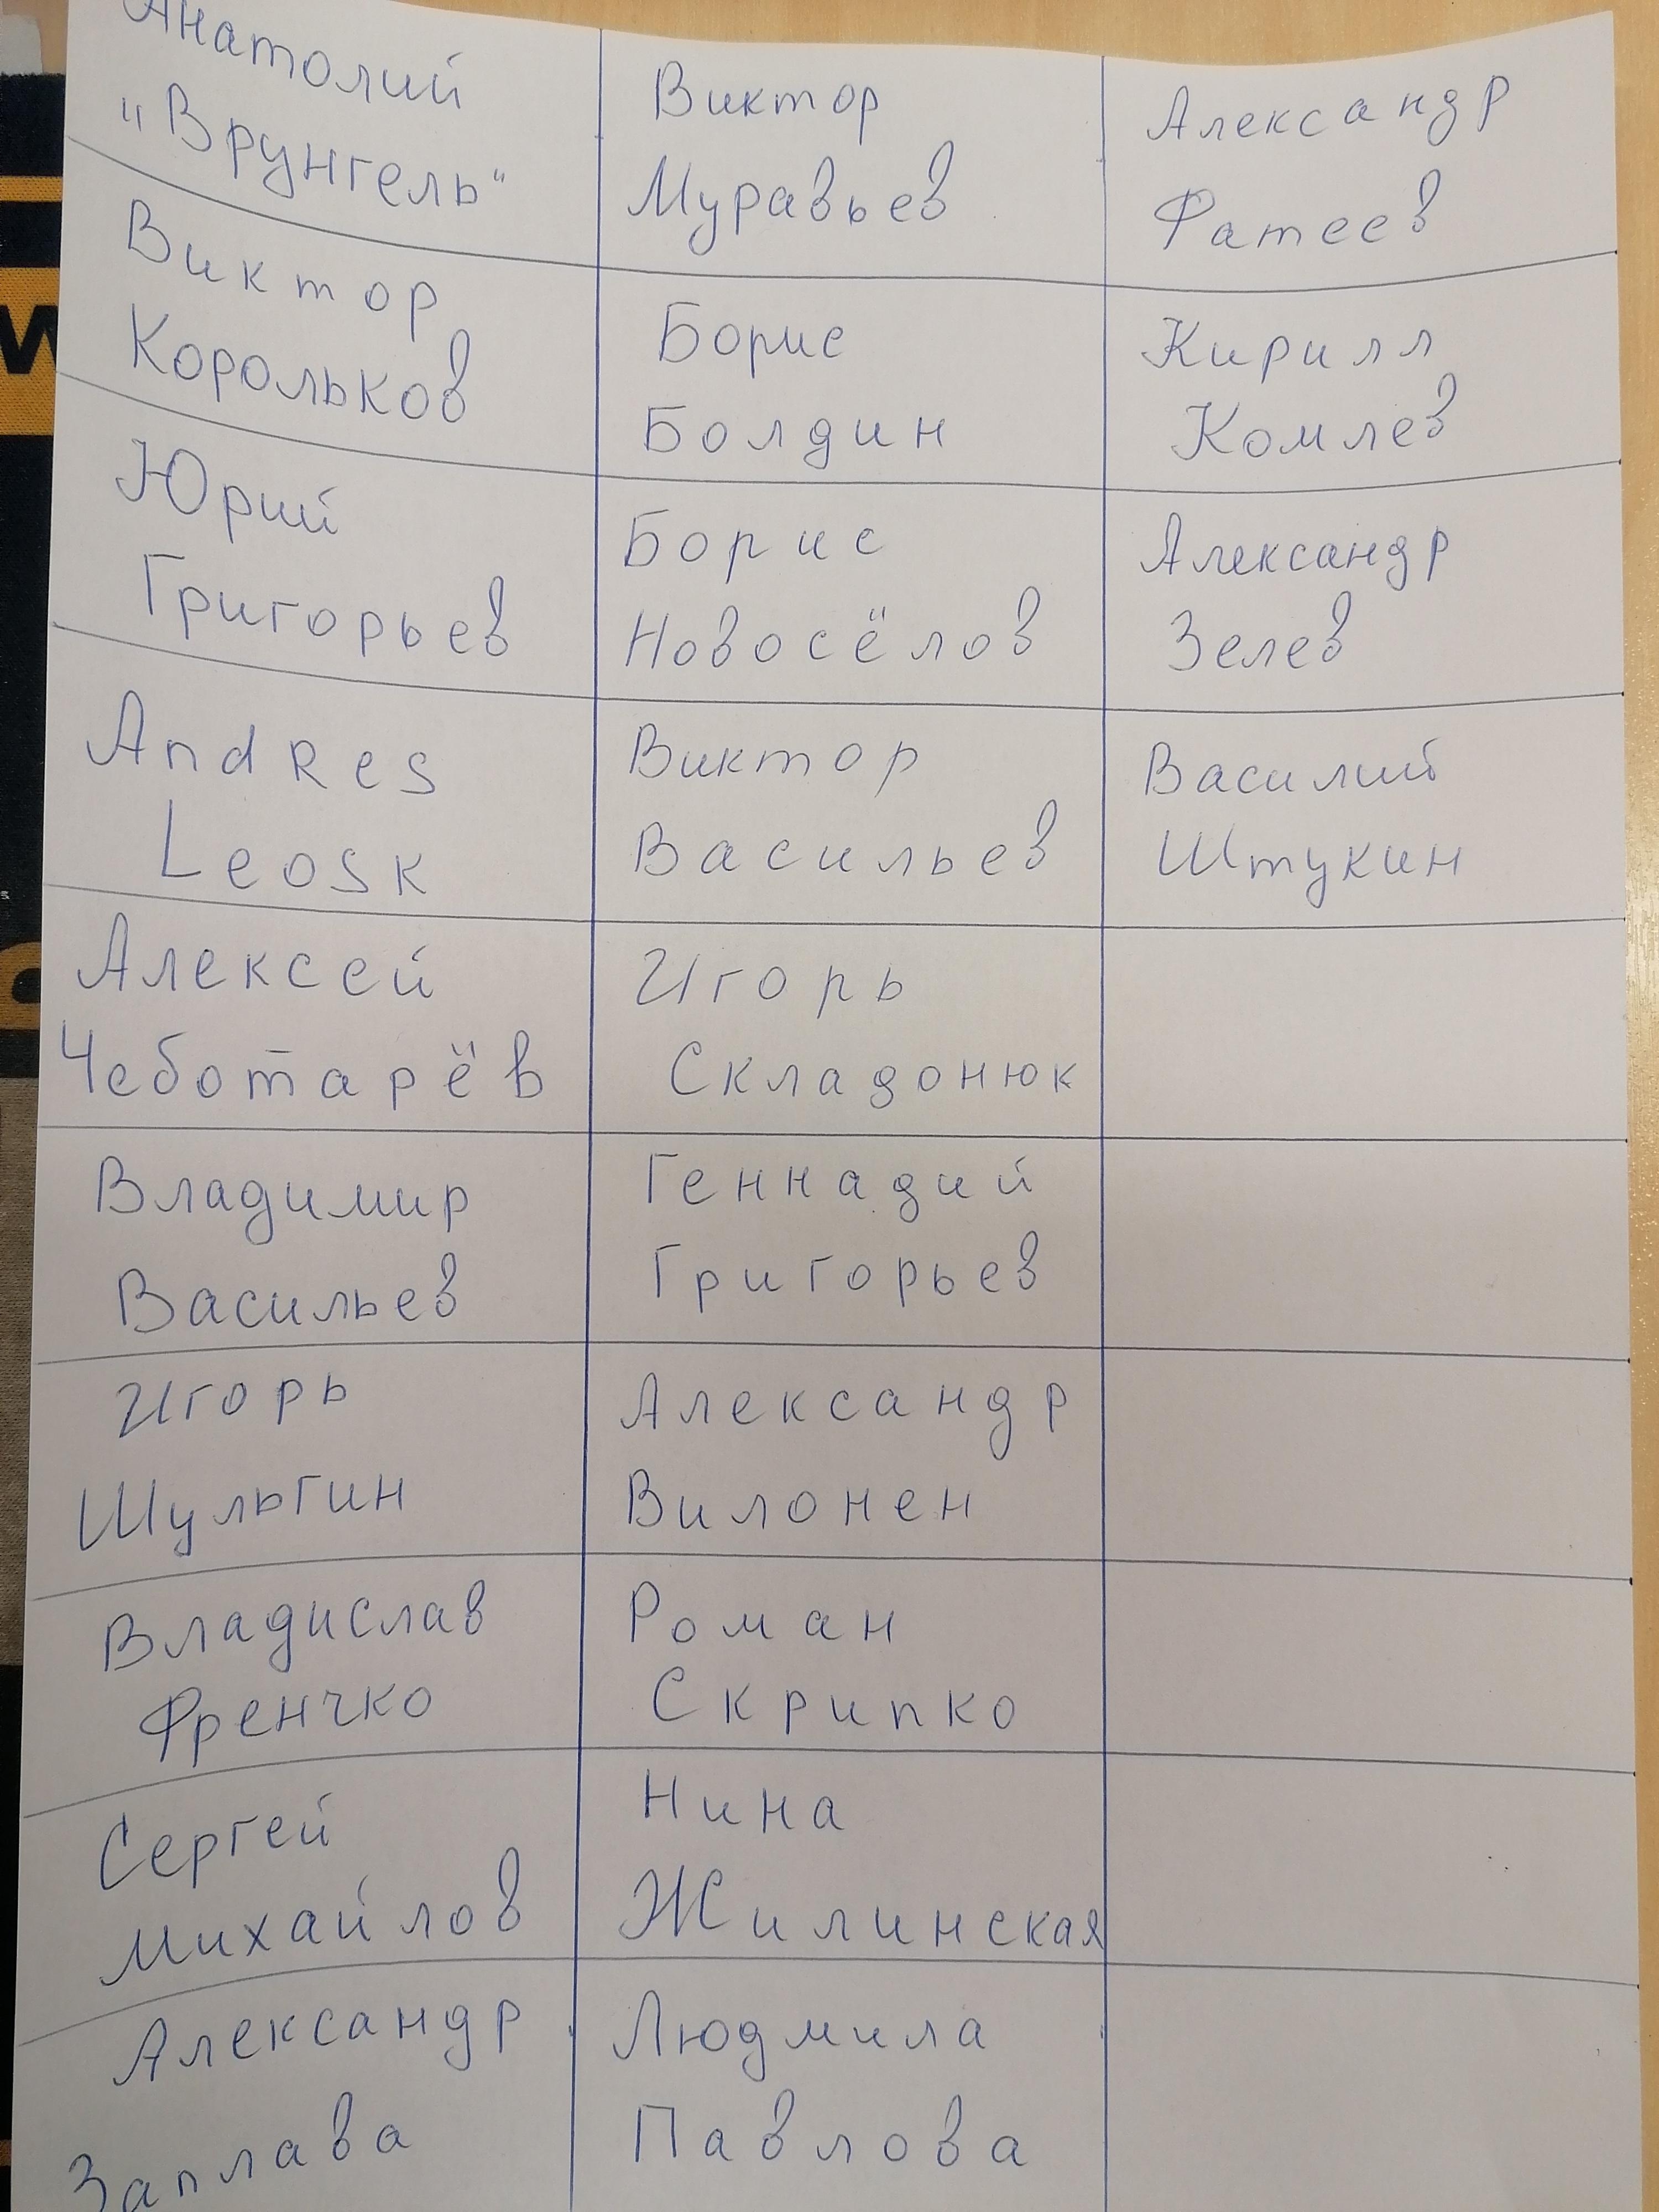 Анатолий
"Врунгель"
Виктор
Корольков
Юрий
Григорьев
Andres
Leosk
Алексей
Чеботарёв
Владимир
Васильев
Игорь
Шульгин
Владислав
Френчко
Сергей
Михайлов
Александр
Заплава
Виктор
Муравьев
Борис
Болдин
Борис
Новосёлов
Виктор
Васильев
Игорь
Складонюк
Геннадий
Григорьев
Александр
Вилонен
Роман
Скрипко
Нина
Жилинская
Людмила
Павлова
Александр
Фатеев
Кирилл
Комлев
Александр
Зелев
Василий
Штукин